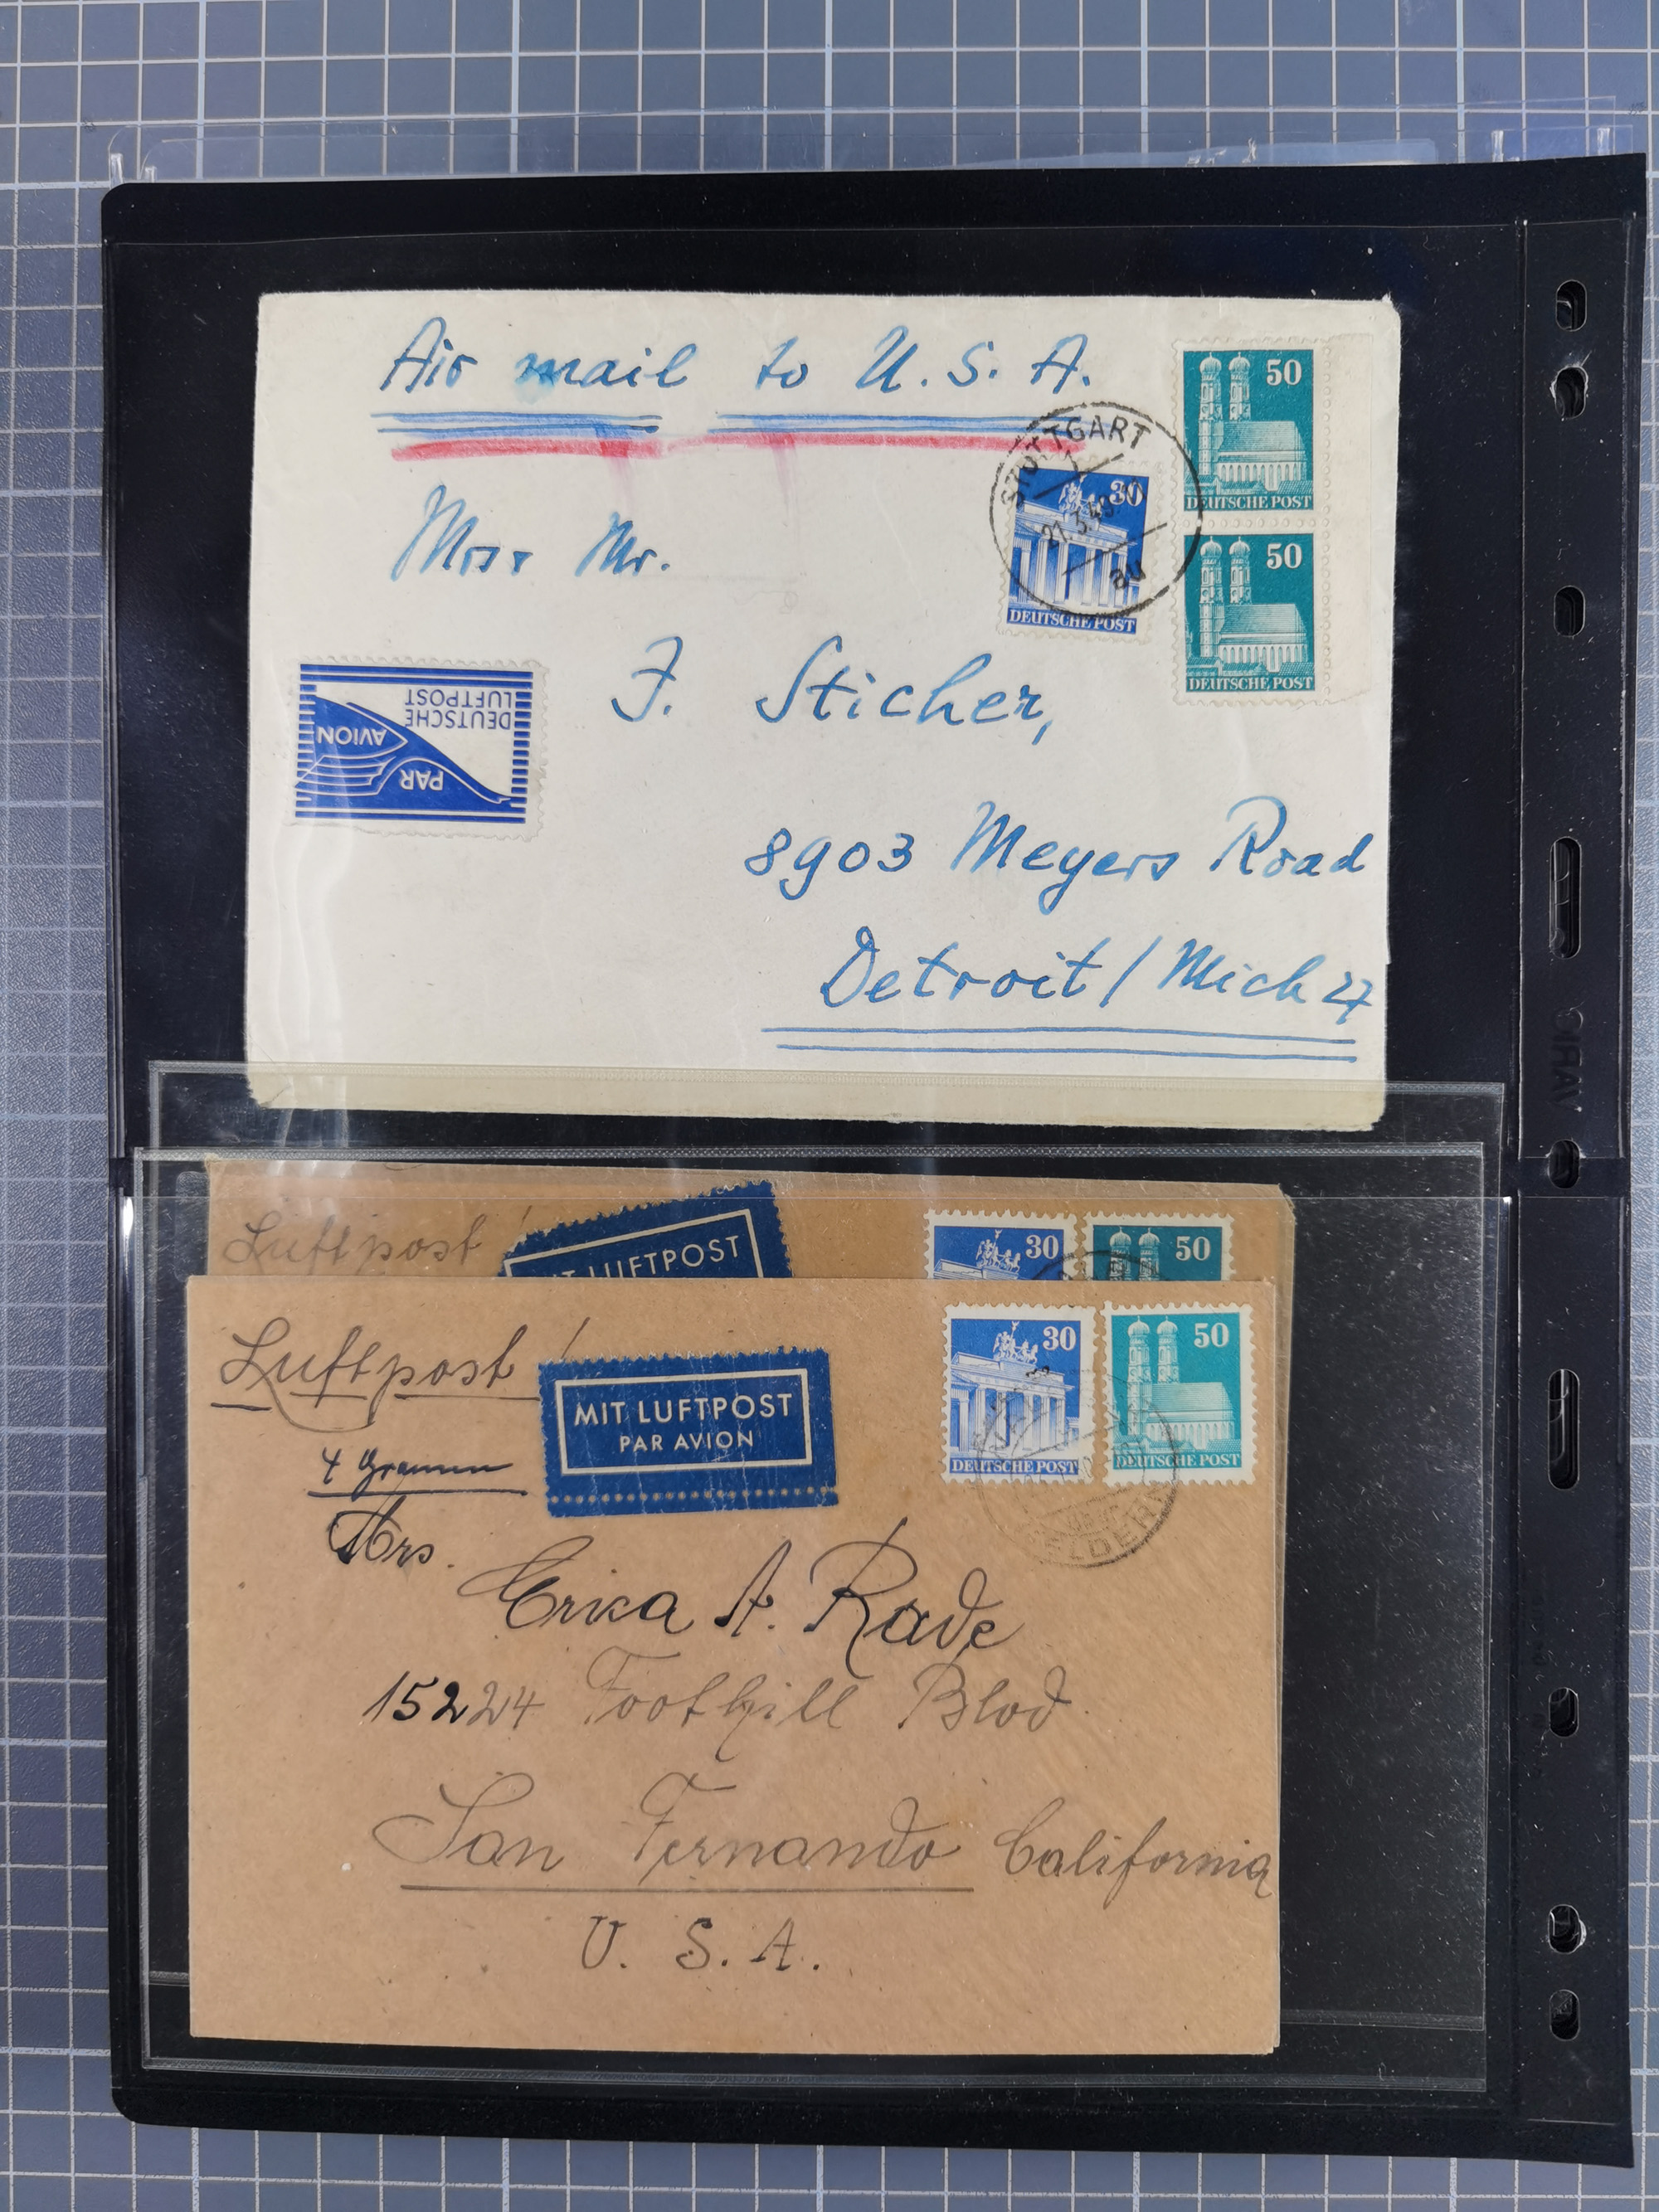 Air mail to U. S. A.
50
DEUTSCHE POST
STUTTGART
30
21.3.49
au
DEUTSCHE POST
50
DEUTSCHE POST
Mr.
F. Sticher,
DEUTSCHE
LUFTPOST
PAR
AVION
8903 Meyers Road
Detroit / Mich 27
Luftpost !
MIT LUFTPOST
30
50
Luftpost !
MIT LUFTPOST
PAR AVION
30
DEUTSCHE POST
50
DEUTSCHE POST
4 Gramm
Mrs.
Erica A. Rade
15224 Foothill Blvd
San Fernando California
U. S. A.